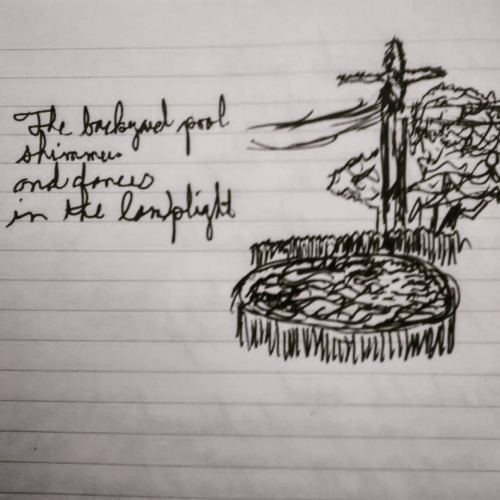 The backyard pool
shimmers
and dances
in the lamplight